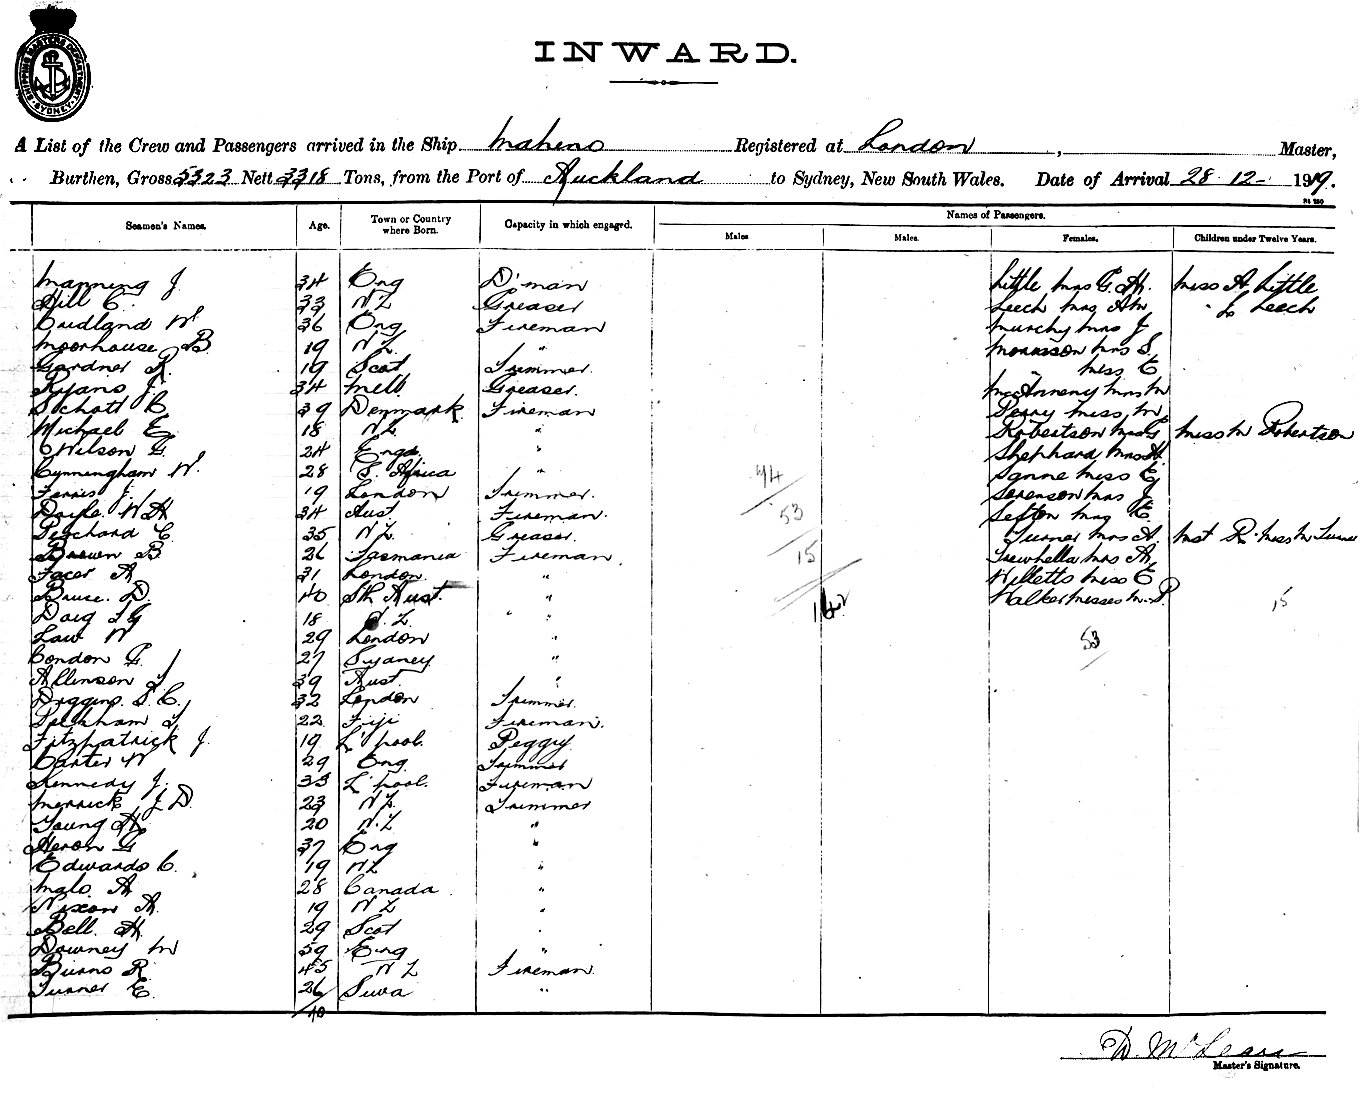 SHIPPING MASTERS DEPARTMENT SYDNEY
INWARD.
A List of the Crew and Passengers arrived in the Ship Maheno Registered at London , Master,
Burthen, Gross 5323 Nett 3318 Tons, from the Port of Auckland to Sydney, New South Wales. Date of Arrival 28 12 - 1919.
Names of Passengers.
Seamen's Names. Age. Town or Country where Born. Capacity in which engaged. Males Males. Females. Children under Twelve Years.
Manning J 34 Eng D'man Little Mrs G. H. Miss A Little
Hill C. 33 N Z Greaser Leech Mrs A M " L Leech
Cudland W 36 Eng Fireman Murchy Mrs J
Moorhouse B 19 N Z. " Morrison Mrs S.
Gardner R. 19 Scot Trimmer. " Miss E
Ryans J. 34 Melb Greaser. McAnneny Mrs M
Schott C 39 Denmark Fireman Perry Miss M
Michael E 18 N Z " Robertson Mrs G Miss M Robertson
Wilson G 24 Engd " Shephard Mrs H
Cunningham W. 28 S. Africa " Miss E
Ferris J. 19 London Trimmer. Sorenson Mrs J
W H 34 Aust Fireman. Sefton Mrs E
Pitchard C 35 N Z. Greaser. Turner Mrs A Mst R. Miss M Turner
Brown B 26 Tasmania Fireman. Trewhella Mrs A
Facer A 31 London " Willetts Miss E
Bruce. D. 40 Sth Aust. " Walker Misses M. P.
Doig J G 18 N. Z. "
Law W 29 London "
Condon P. 27 Sydney "
Allinson J 39 Aust. "
Diggins. S. C. 32 London Trimmer.
Pelkham J 22 Fiji Fireman.
Fitzpatrick J. 19 L'pool. Peggy
Carter W 29 Eng Trimmer
Kennedy J. 33 L'pool. Fireman
Merrick J D. 23 N Z. Trimmer
Young H. 20 N. Z "
Heron G 37 Eng "
Edwards C. 19 N Z "
Malo A 28 Canada "
Nixon A. 19 N Z "
Bell. H. 29 Scot "
Downey M 59 Eng "
Burns R 45 N Z Fireman
Turner E. 26 Suva "
40
94
53
15
162
53
15
D. McLean
Master's Signature.